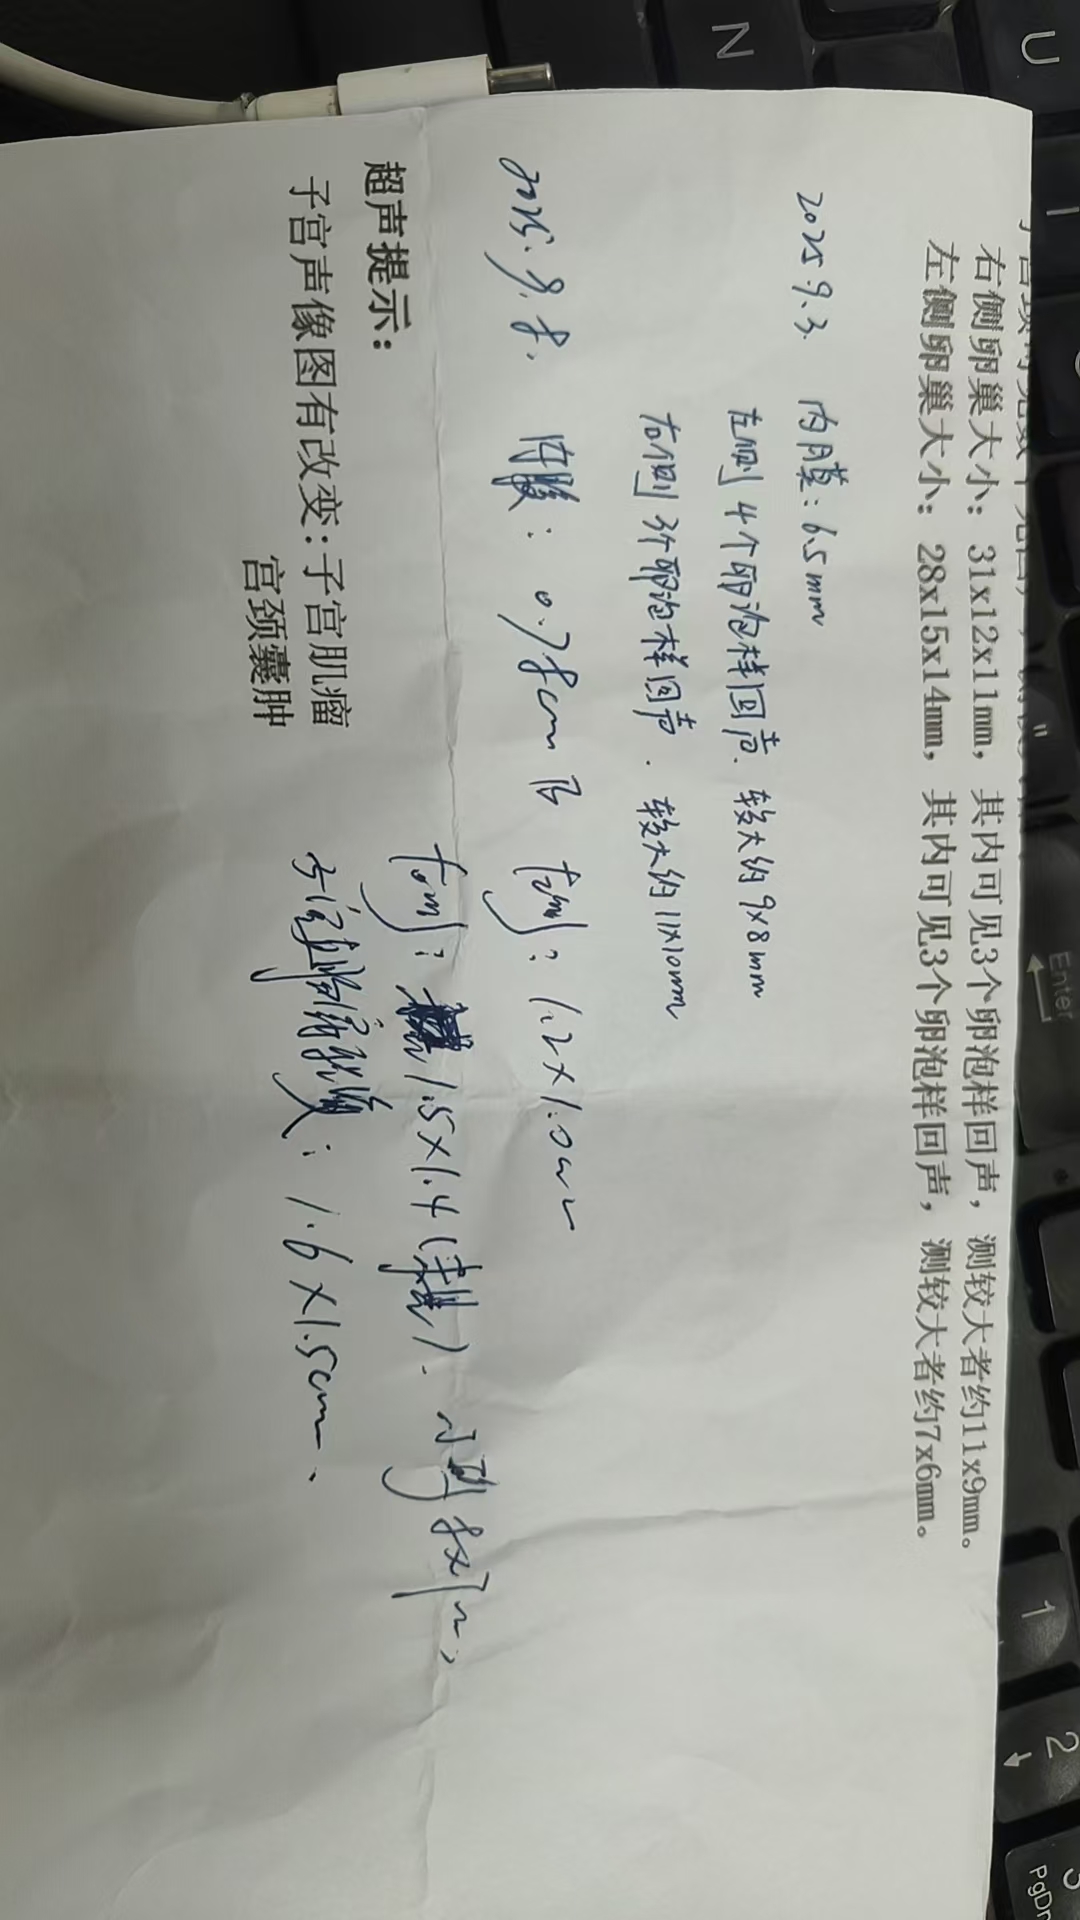 右侧卵巢大小：31x12x11mm，其内可见3个卵泡样回声，测较大者约11x9mm。
左侧卵巢大小：28x15x14mm，其内可见3个卵泡样回声，测较大者约7x6mm。
2025.9.3. 内膜：6.5mm
左侧 4个卵泡样回声. 较大约9x8mm
右侧 3个卵泡样回声. 较大约11x10mm
2025.9.8. 内膜：0.78cm B 左侧：1.2×1.0cm
右侧：1.5×1.4
超声提示：
子宫声像图有改变：子宫肌瘤
宫颈囊肿
：1.6×1.5cm.
N
U
Enter
1
2
3
PgDn